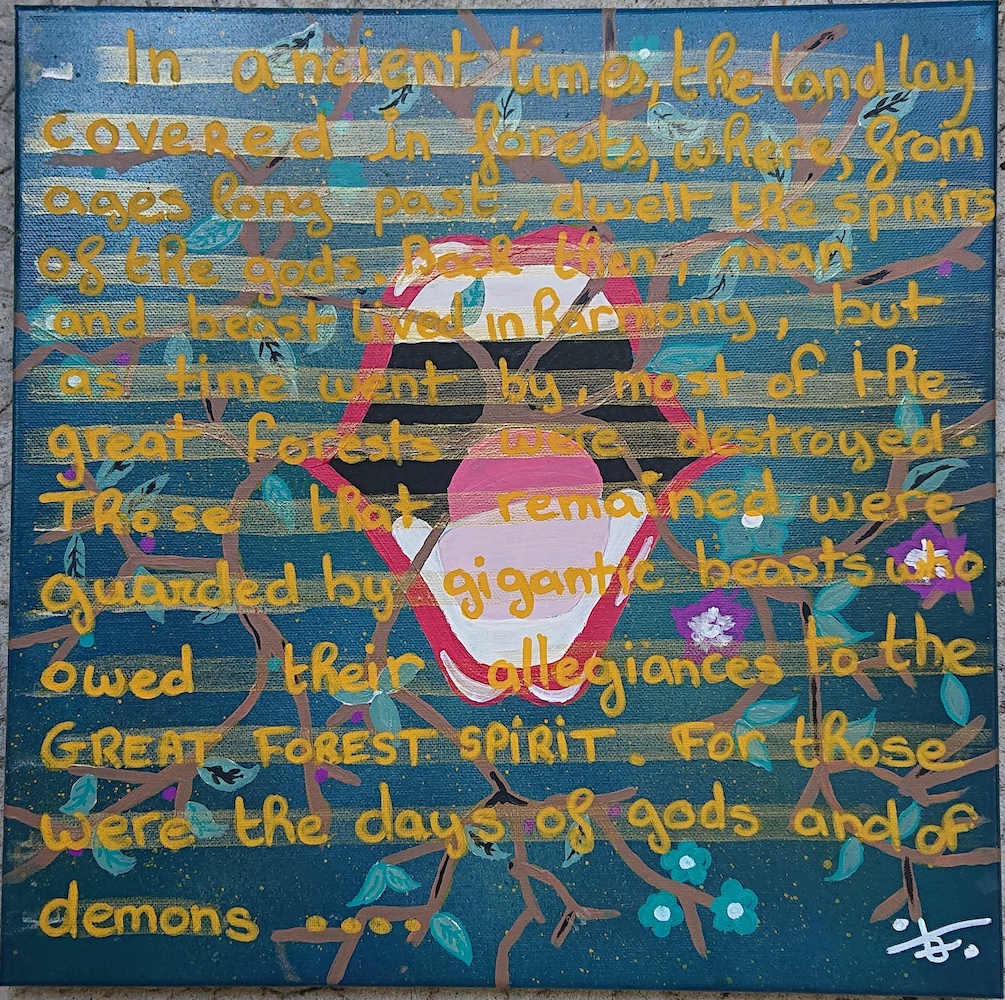 In ancient times, the land lay
covered in forests, where, from
ages long past, dwelt the SPIRITS
of the gods. Back then, man
and beast lived in harmony, but
as time went by, most of the
great forests were destroyed.
Those that remained were
guarded by gigantic beasts who
owed their allegiances to the
GREAT FOREST SPIRIT. For those
were the days of gods and of
demons ....